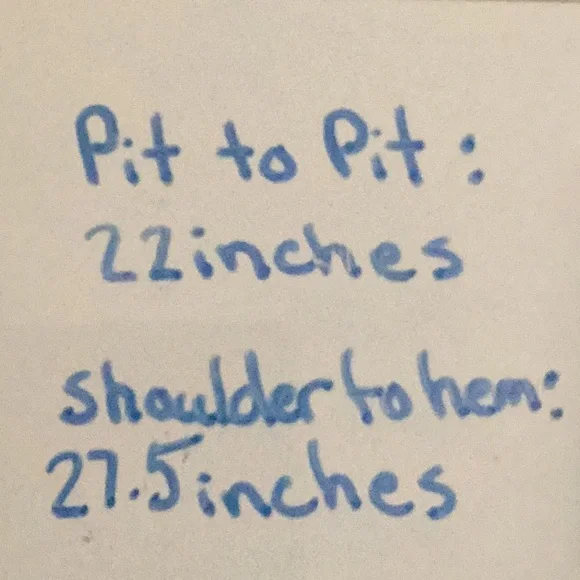 Pit to Pit:
22inches
shoulder to hem:
27.5inches